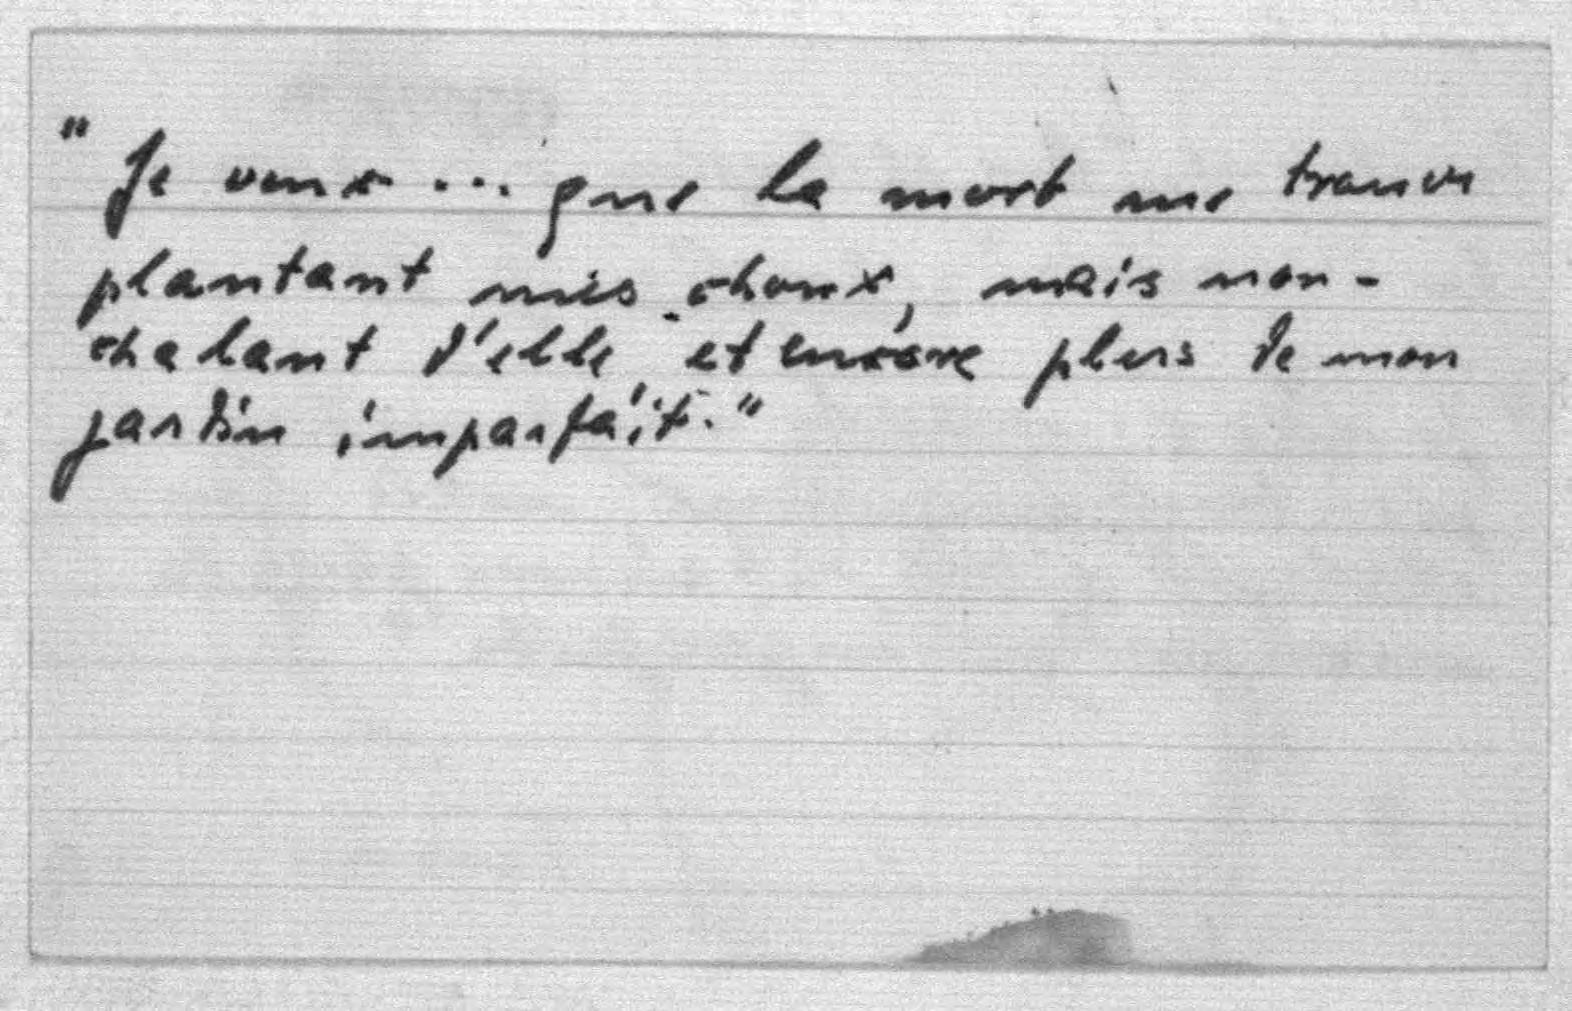 "Je veux ... que la mort me trouve
plantant mes choux, mais non-
chalant d'elle et encore plus de mon
jardin imparfait."